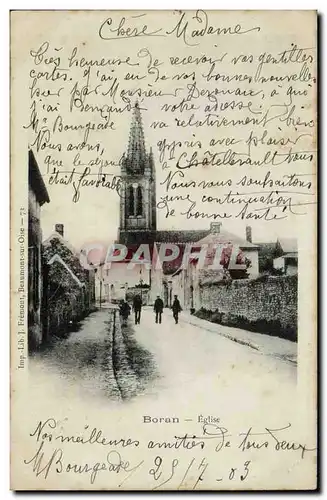 Chère Madame
Très heureuse de recevoir vos gentilles
cartes. J'ai eu de vos bonnes nouvelles
hier par Monsieur à qui
j'ai demandé votre adresse.
Mr Bourgeade va relativement bien
Nous avons appris avec plaisir
que le séjour à Châtellerault vous
était favorable
Nous vous souhaitons
une continuation
de bonne santé
Imp.-Lib. J. Frémont, Beaumont-sur-Oise — 75
Boran — Église
Nos meilleures amitiés de tous deux
M Bourgeade 28/7 03